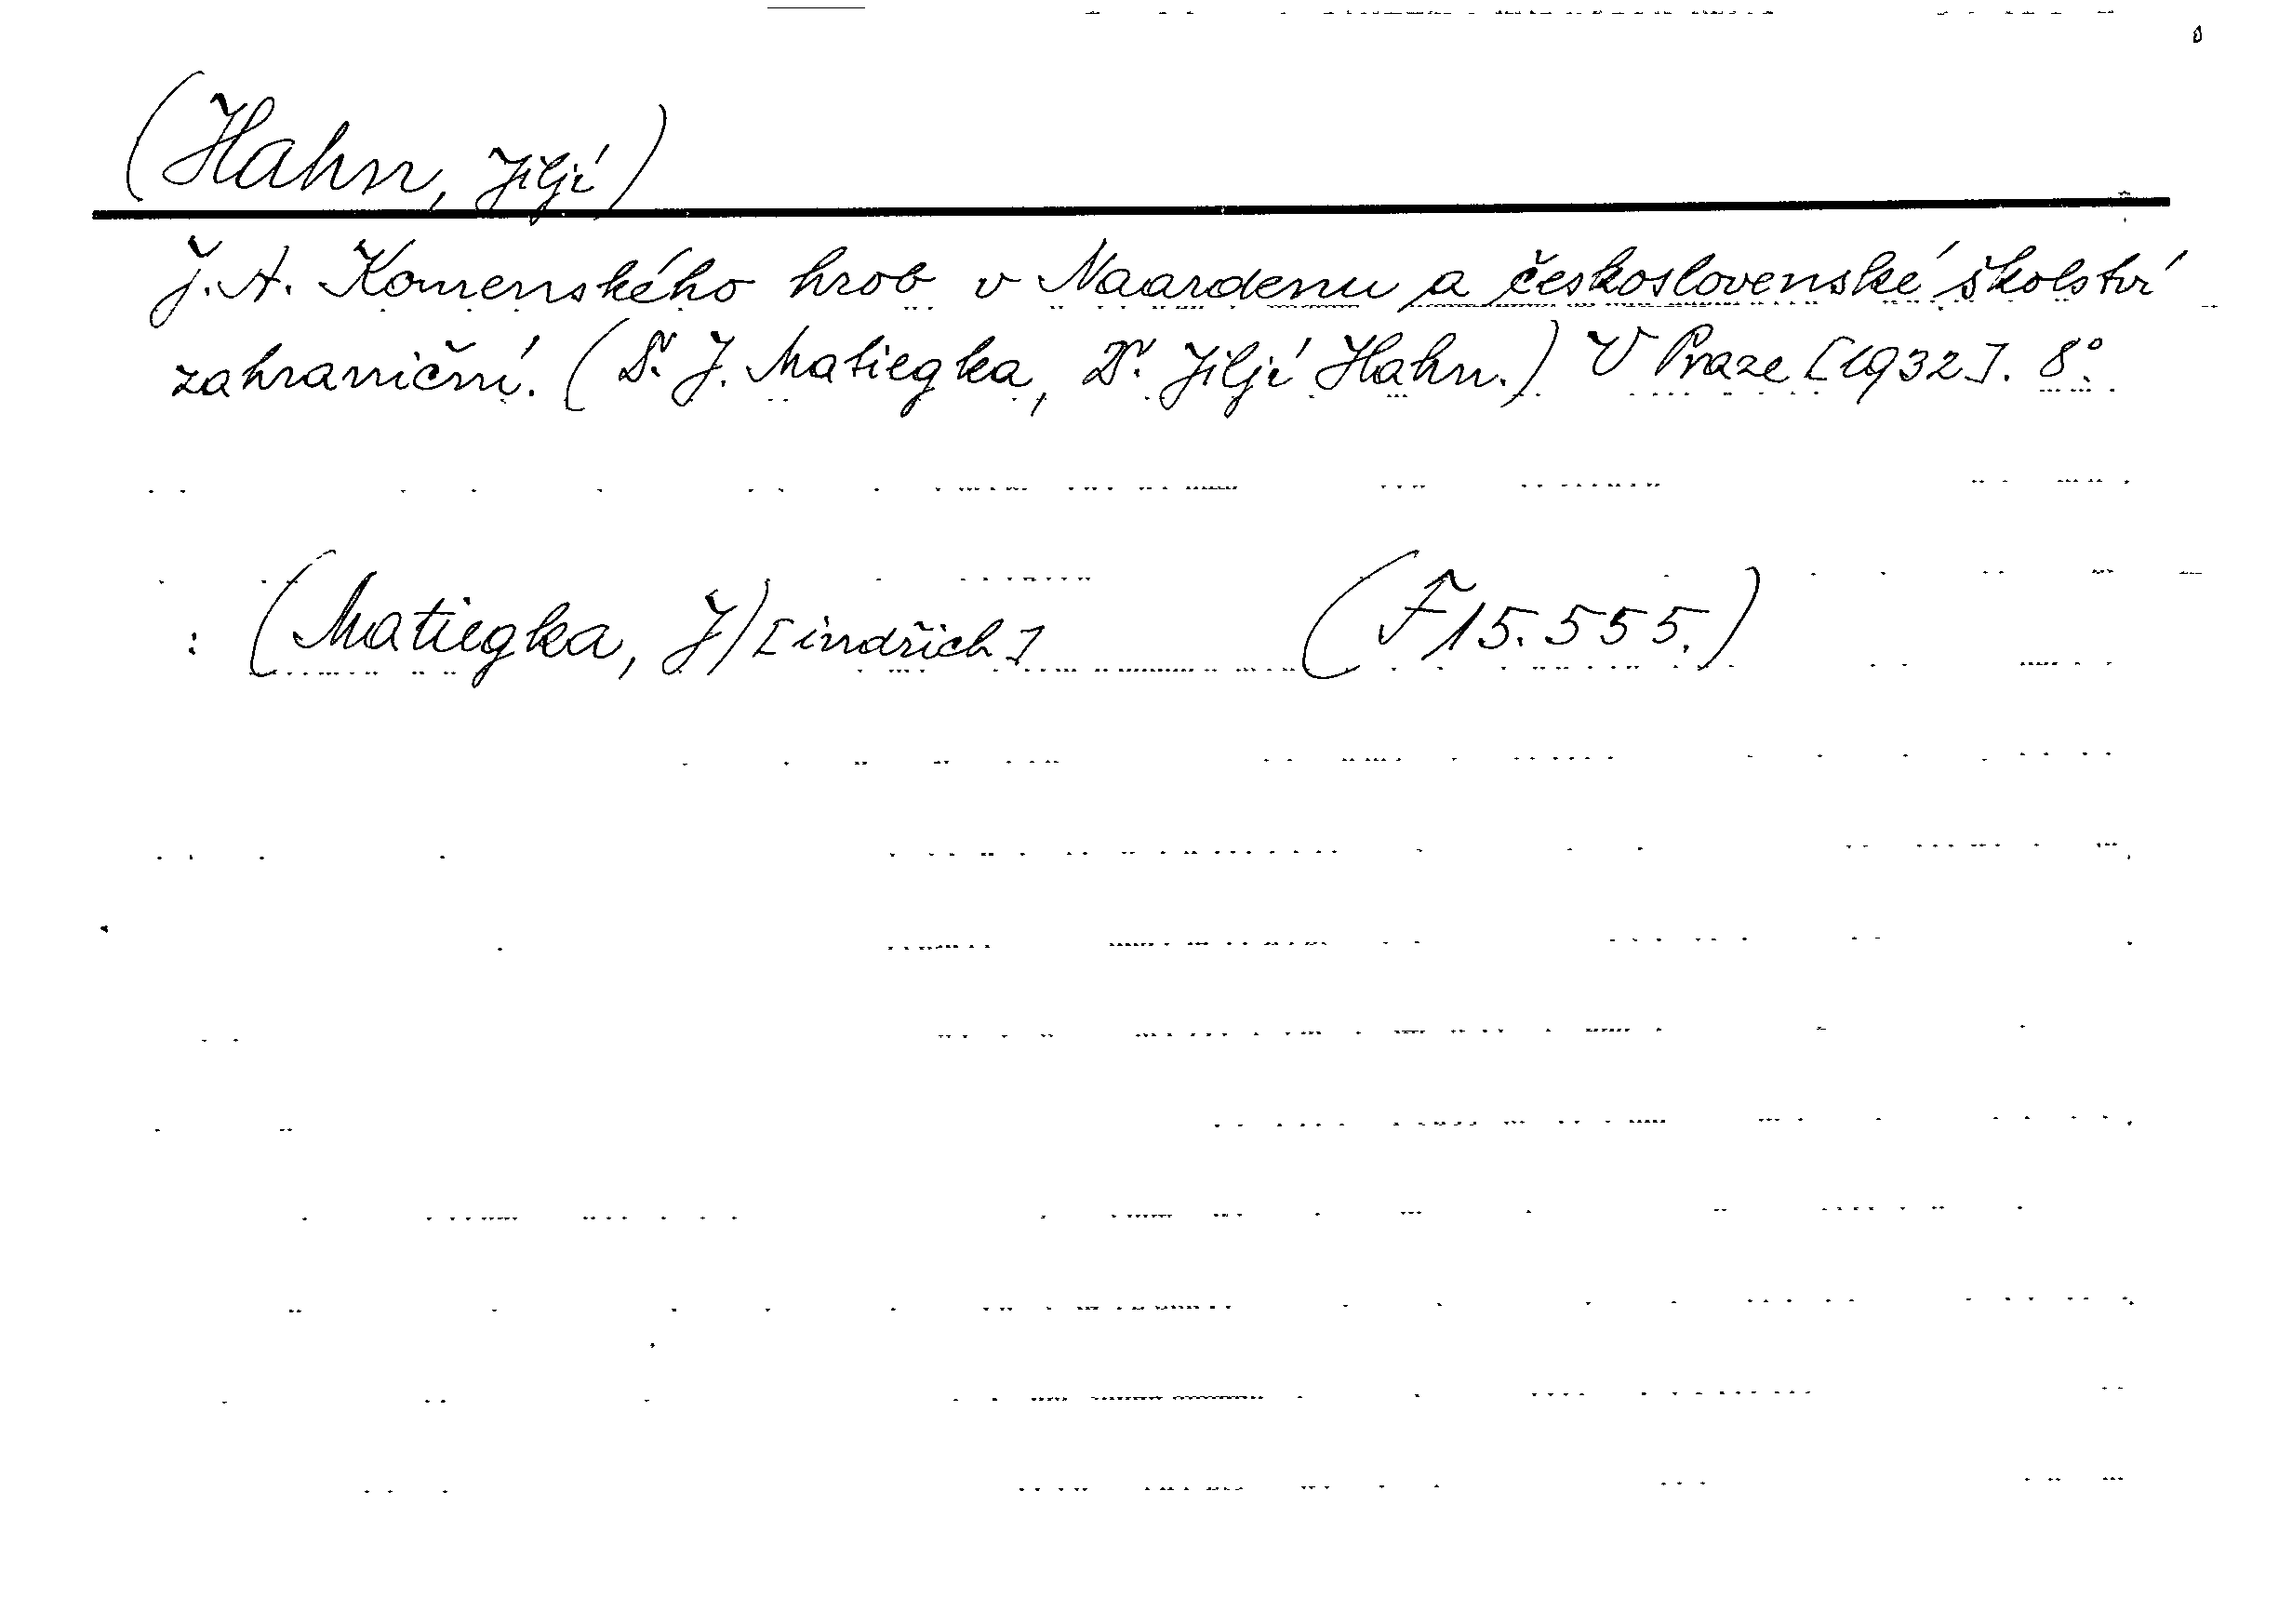 (Hahn, Jiljí)
J. A. Komenského hrob v Naardenu a československé školství
zahraniční. (Dr. J. Matiegka, Dr. Jiljí Hahn.) V Praze [1932]. 8°.
: (Matiegka, J) [indřich] (F 15.555.)